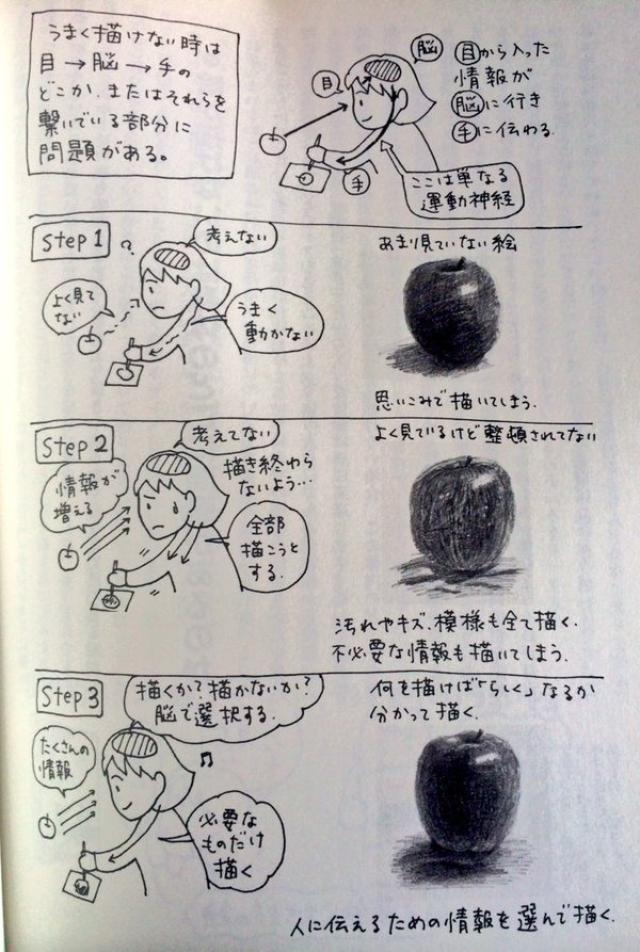 うまく描けない時は
目→脳→手の
どこか、またはそれらを
繋いでいる部分に
問題がある。
脳
目
手
目から入った
情報が
脳に行き
手に伝わる。
ここは単なる
運動神経
Step 1
?
考えない
よく見て
ない
うまく
動かない
あまり見ていない絵
思いこみで描いてしまう。
Step 2
考えてない
情報が
増える
描き終わら
ないよう…
全部
描こうと
する。
よく見ているけど整頓されてない
汚れやキズ、模様も全て描く。
不必要な情報も描いてしまう。
Step 3
描くか?描かないか?
脳で選択する。
たくさんの
情報
♫
必要な
ものだけ
描く
何を描けば「らしく」なるか
分かって描く。
人に伝えるための情報を選んで描く。